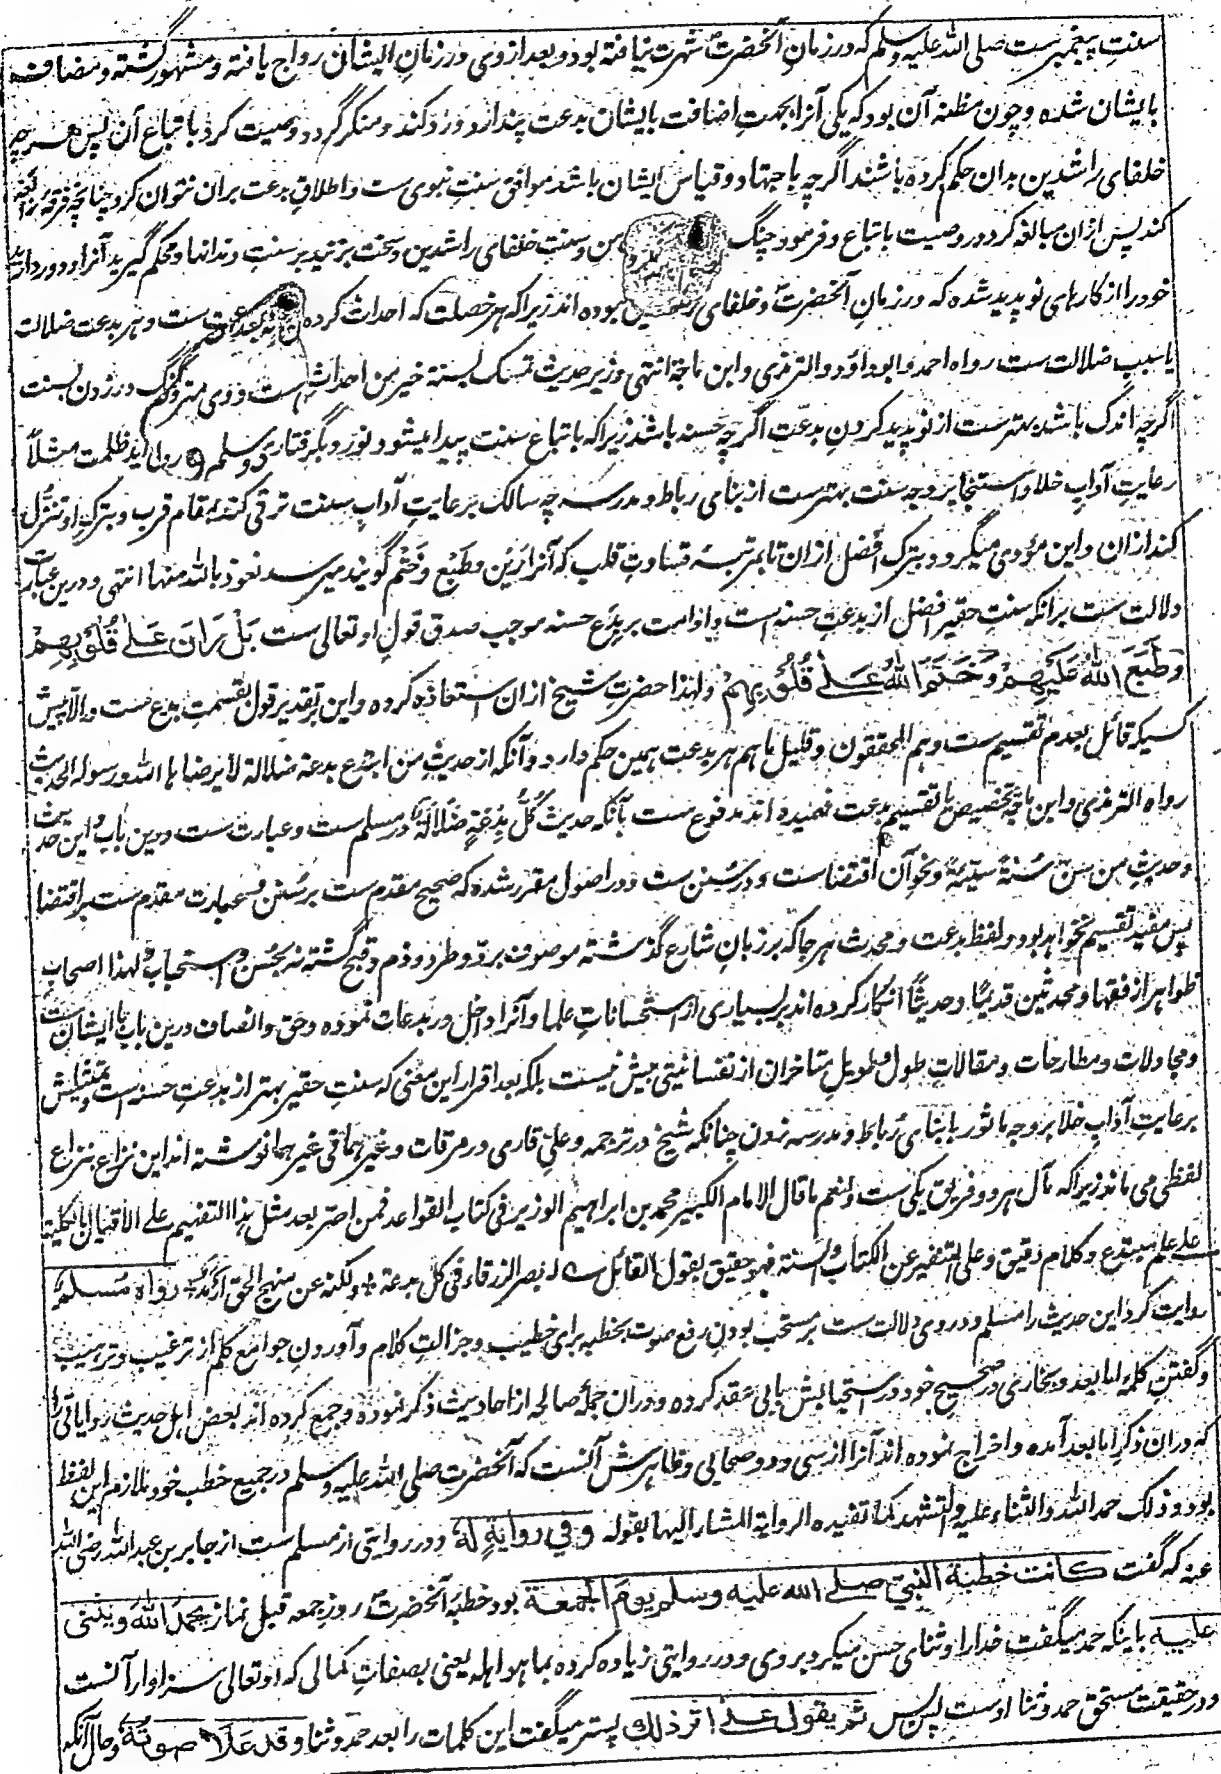 سنتِ پیغمبرست صلی الله علیه وسلم که در زمانِ آنحضرتؐ شهرت نیافته بود و بعد از وی در زمانِ ایشان رواج یافته و مشهور گشته و مضاف
بایشان شده و چون مظنه آن بود که یکی آنرا بجهتِ اضافت بایشان بدعت پندارد و رد کند و منکر گردد وصیت کرد باتباع آن پس هر چه
خلفای راشدین بدان حکم کرده باشند اگرچه باجتهاد و قیاسِ ایشان باشد موافق سنتِ نبوی ست و اطلاقِ بدعت بران نتوان کرد چنانچه فرقهٔ زائغه
کند پس ازان مبالغه کرد در وصیت باتباع و فرمود چنگ من و سنتِ خلفای راشدین و سخت بزنید بر سنت دندانها و محکم گیرید آنرا و دور دارید
خود را از کارهای نو پدید شده که در زمانِ آنحضرتؐ و خلفای نبوده اند زیرا که هر خصلت که احداث کرده بدعت ست و هر بدعت ضلالت
یا سبب ضلالت ست رواه احمد و ابوداؤد و الترمذی و ابن ماجة انتهی و زیر حدیث تمسک بسنة خیر من احداث ست و وی چنگ در زدن بسنت
اگرچه اندک باشد بهترست از نو پدید کردنِ بدعت اگرچه حسنه باشد زیرا که باتباع سنت پیدا میشود نور و بگرفتاری ظلمت مثلاً
رعایتِ آدابِ خلا و استنجا بر وجه سنت بهترست از بنای رباط و مدرسه چه سالک برعایتِ آدابِ سنت ترقی کند بمقام قرب و بترکِ او تنزُّل
کند ازان و این مؤدی میگردد بترک افضل ازان تا بمرتبهٔ قساوتِ قلب که آنرا رَیْن و طَبْع و خَتْم گویند میرسد نعوذ بالله منها انتهی و درین عبارت
دلالت ست برانکه سنتِ حقیر افضل از بدعتِ حسنه است و ادامت بر بدَعِ حسنه موجبِ صدق قولِ او تعالی ست بَلْ رَانَ عَلٰی قُلُوْبِهِمْ
وَطَبَعَ اللهُ عَلَیْهِمْ وَخَتَمَ اللهُ عَلٰی قُلُوْبِهِمْ و لهذا حضرتِ شیخ ازان استعاذه کرده و این بر تقدیر قول بقسمتِ بدع ست و الا پیش
کسیکه قائل بعدم تقسیم ست و هم المحققون و قلیل ما هم هر بدعت همین حکم دارد و آنکه از حدیثِ من ابتدع بدعة ضلالة لا یرضاها الله و رسوله الحدیث
رواه الترمذی و ابن ماجة تخصیص یا تقسیم بدعت فهمیده اند مدفوع ست بآنکه حدیث کُلُّ بِدْعَةٍ ضَلَالَةٌ در مسلم ست و عبارت ست درین باب و این حدیث
و حدیثِ من سَنَّ سُنَّةً سَیِّئَةً و نحوِ آن اقتضاست و در سُنن ست و در اصول مقرر شده که صحیح مقدم ست بر سُنن و عبارت مقدم ست بر اقتضا
پس مفید تقسیم نخواهد بود و لفظ بدعت و محدث هر جا که بر زبانِ شارع گذشته موصوف برد و طرد و ذم و قبح گشته نه بحُسن و استحباب و لهذا اصحابِ
ظواهر از فقها و محدثین قدیماً و حدیثاً انکار کرده اند بر بسیاری از استحساناتِ علما و آنرا داخل در بدعات نموده و حق و انصاف درین باب با ایشان ست
و مجادلات و مطارحات و مقالاتِ طول طویلِ متاخران از نفسانیتی بیش نیست بلکه بعد اقرار این معنی که سنتِ حقیر بهتر از بدعتِ حسنه است و تمثیلش
برعایتِ آدابِ خلا بر وجه ماثور با بنای رباط و مدرسه نمودن چنانکه شیخ در ترجمه و علی قاری در مرقات و غیرهما فی غیرهما نوشته اند این نزاع بنزاعِ
لفظی می ماند زیرا که مآل هر دو فریق یکی ست و لنعم ما قال الامام الکبیر محمد بن ابراهیم الوزیر فی کتاب القواعد فمن اصر بعد مثل هذا التفهیم علی الاقبال بالکلیة
علی علم مبتدع و کلام دقیق و علی التنفیر عن الکتاب والسنة فهو حقیق بقول القائل بصر الزرقاء فی کل بدعة ولکنه عن منهج الحق رواه مُسلمٌ
روایت کرد این حدیث را مسلم و در وی دلالت ست بر مستحب بودنِ رفع صوت بخطبه برای خطیب و جزالتِ کلام و آوردنِ جوامع کلم از ترغیب و ترهیب
و گفتنِ کلمهٔ اما بعد و بخاری در صحیح خود در استحبابش بابی عقد کرده و دران جملهٔ صالحه از احادیث ذکر نموده و جمع کرده اند بعض اهلِ حدیث روایاتی را
که دران ذکر اما بعد آمده و اخراج نموده اند آنرا از سی و دو صحابی و ظاهرش آنست که آنحضرت صلی الله علیه وسلم در جمیع خطب خود ملازم این لفظ
بود و ذلک حمد الله والثناء علیه والتشهد کما تفیده الروایة المشار الیها بقوله وَفِي رِوَايَةٍ لَهُ و در روایتی از مسلم ست از جابر بن عبدالله رضی الله
عنه که گفت كانت خطبة النبيّ صلى الله عليه وسلم يومَ الجمعة بود خطبهٔ آنحضرتؐ روز جمعه قبل نماز يحمدُ اللهَ ويثني
عليه باینکه حمد میگفت خدا را و ثنای حسن میکرد بر وی و در روایتی زیاده کرده بما هو اهله یعنی بصفاتِ کمالی که او تعالی سزاوار آنست
و در حقیقت مستحق حمد و ثنا اوست پس ثم يقول على اثر ذلك پستر میگفت این کلمات را بعد حمد و ثنا وقد عَلَا صوتُهُ و حال آنکه